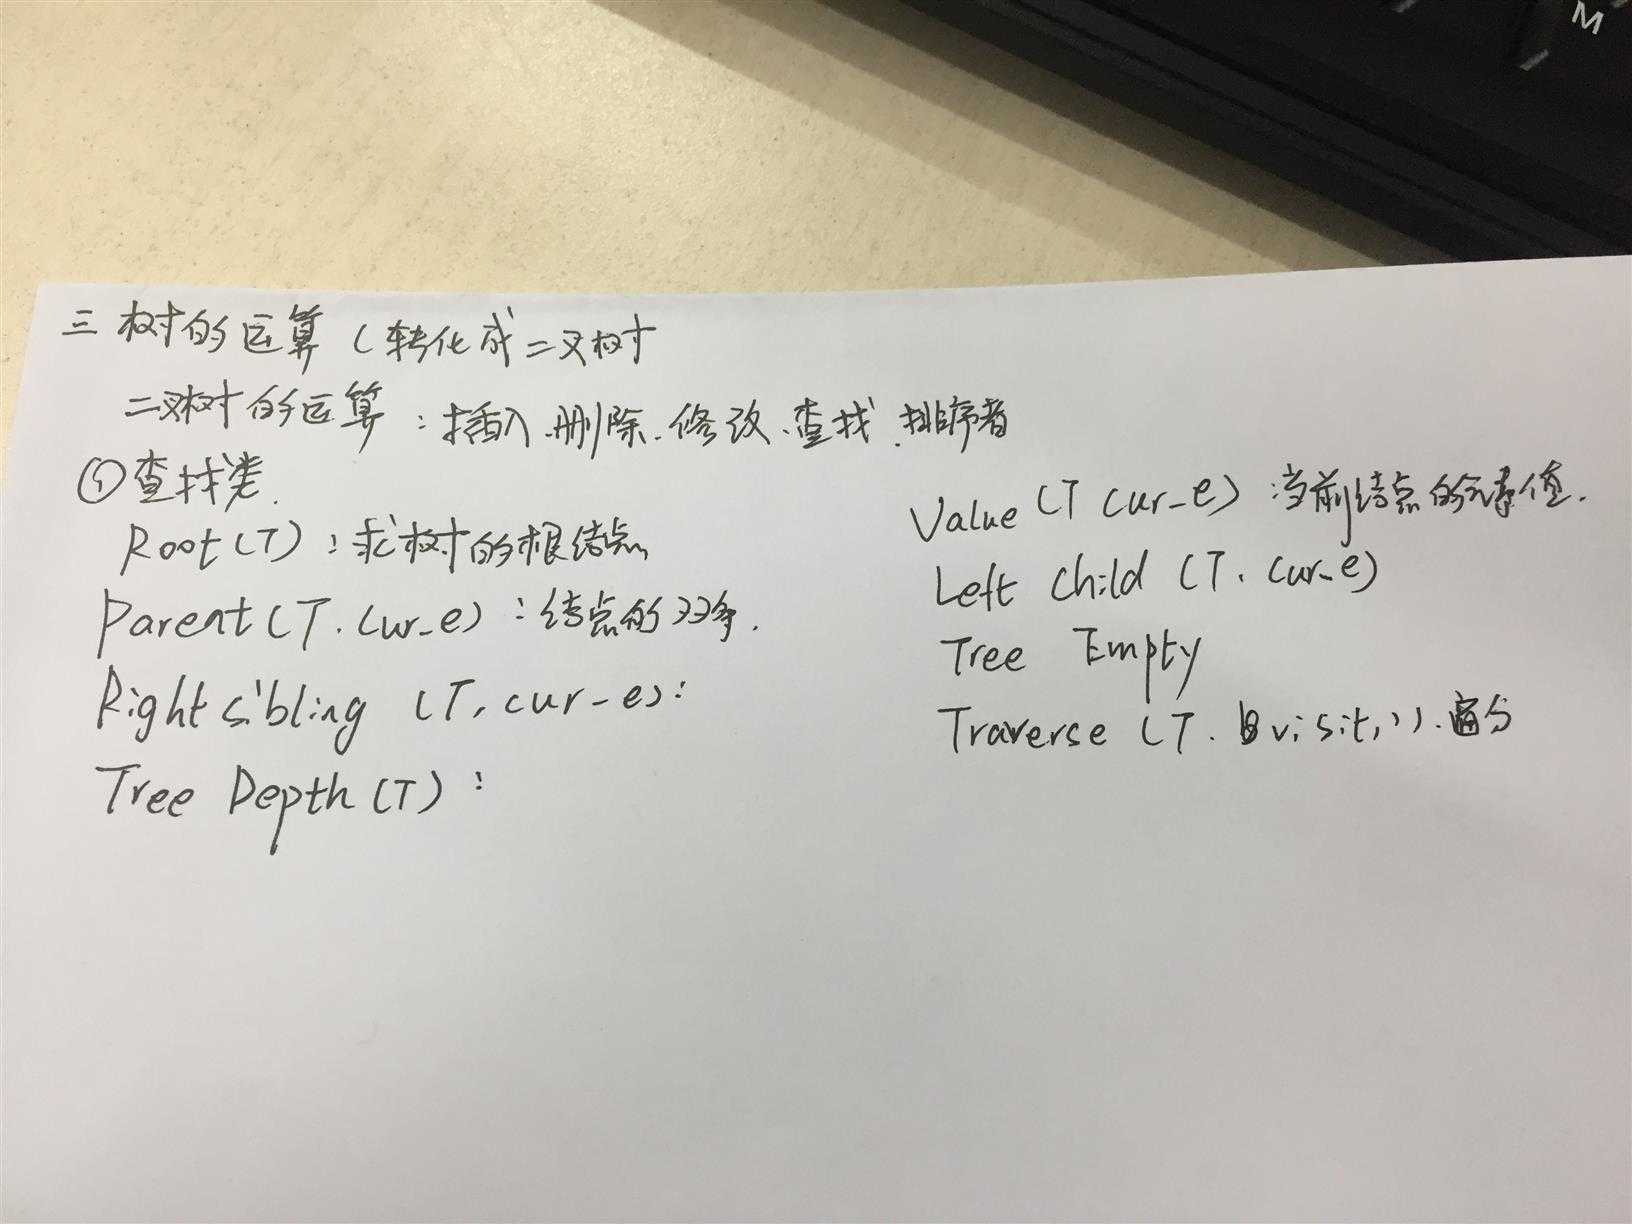 三 树的运算(转化成二叉树
二叉树的运算:插入、删除、修改、查找、排序者
①查找类.
Root(T):求树的根结点
Parent(T.cur_e):结点的双亲.
Right sibling (T,cur_e):
Tree Depth(T):
Value(T cur_e):当前结点的元素值.
Left child (T. cur_e)
Tree Empty
Traverse (T. visit,)).
M